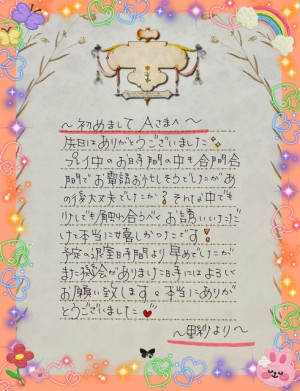 〜初めまして Aさまへ〜
先日はありがとうございました
プレイ中のお時間の中も合間合
間でお電話おうちしそうでしたがあ
の後大丈夫でしたか？それは中でも
少しでも触れ合うべくお誘いいただ
けて本当に嬉しかったです！
予定の退室日時間より早めでしたが
また機会がありました日時にはよろしく
お願い致します。本当にありが
とうございました
より〜